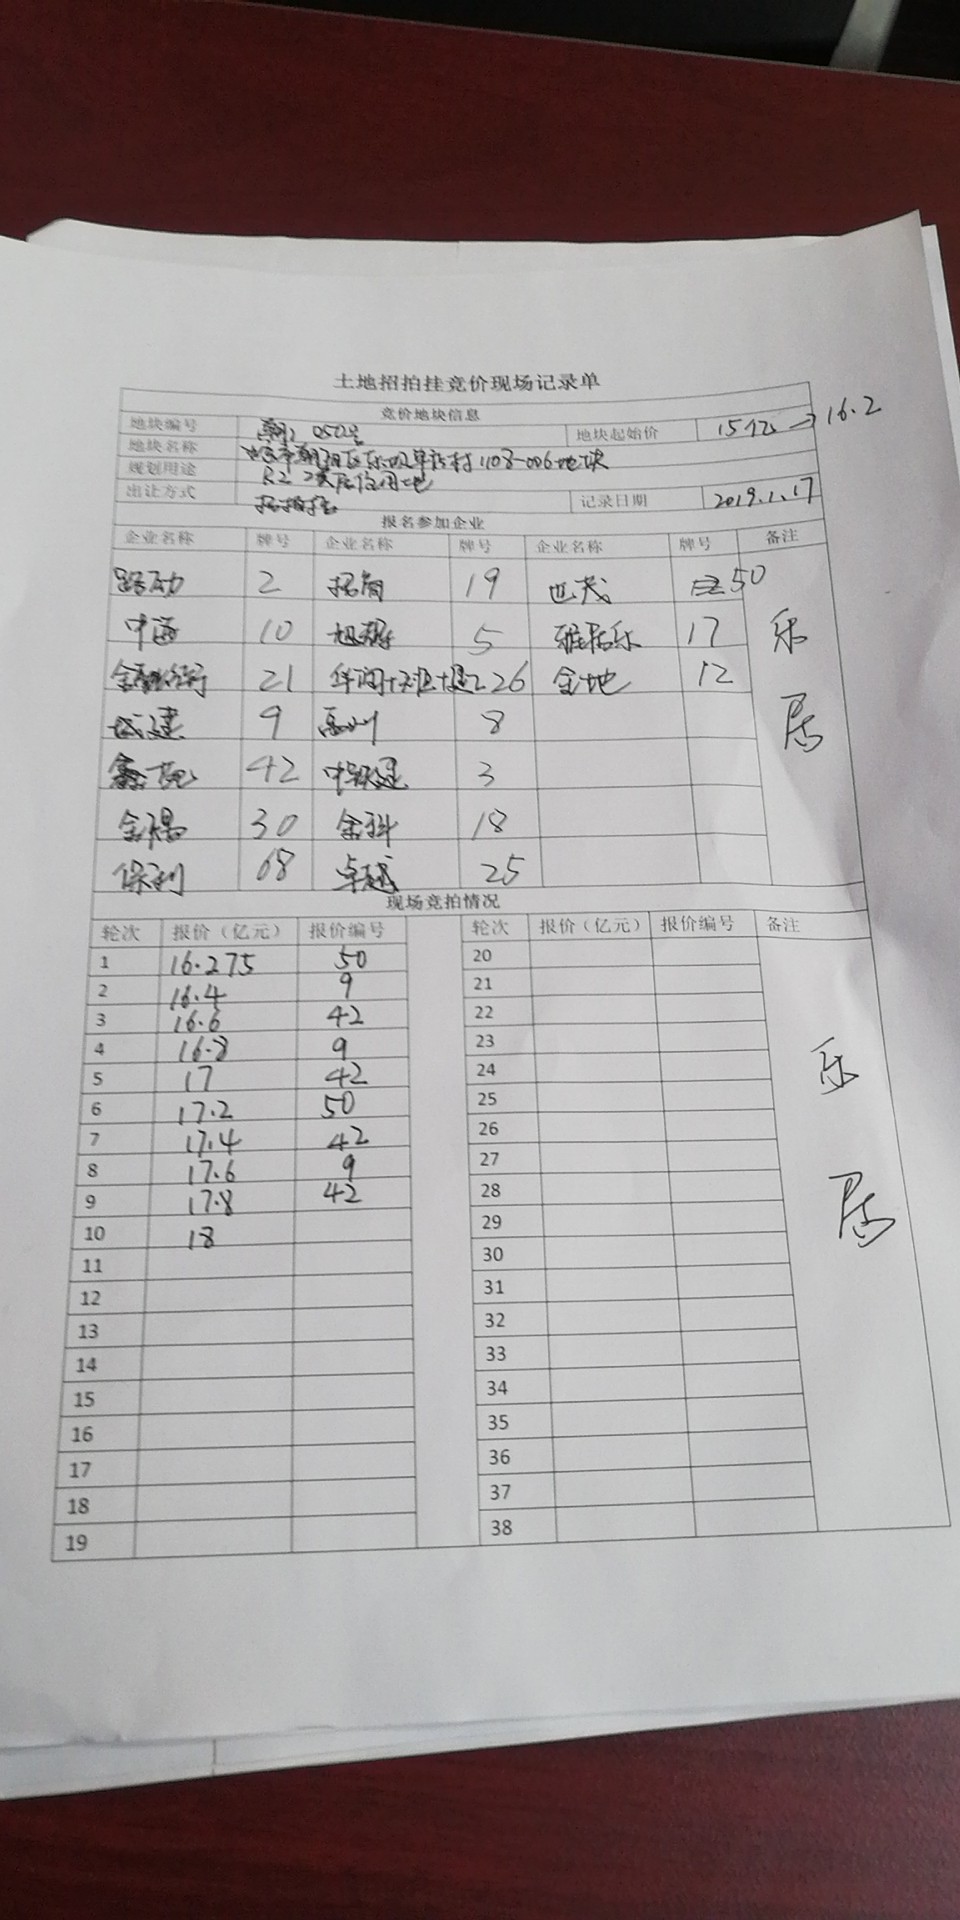 土地招拍挂竞价现场记录单
竞价地块信息
地块编号 0502号 地块起始价 15亿 → 16.2
地块名称 北京市朝阳区东坝单店村1108-006地块
规划用途 R2二类居住用地
出让方式 招拍挂 记录日期 2019.1.17
报名参加企业
企业名称 牌号 企业名称 牌号 企业名称 牌号 备注
2 招商 19 世茂 50
中海 10 旭辉 5 雅居乐 17 乐
金融街 21 华润+ 26 金地 12 居
城建 9 禹洲 8
42 中铁建 3
金隅 30 金科 18
保利 68 卓越 25
现场竞拍情况
轮次 报价（亿元） 报价编号 轮次 报价（亿元） 报价编号 备注
1 16.275 50 20
2 16.4 9 21
3 16.6 42 22
4 16.8 9 23
5 17 42 24 乐
6 17.2 50 25
7 17.4 42 26
8 17.6 9 27
9 17.8 42 28 居
10 18 29
11 30
12 31
13 32
14 33
15 34
16 35
17 36
18 37
19 38